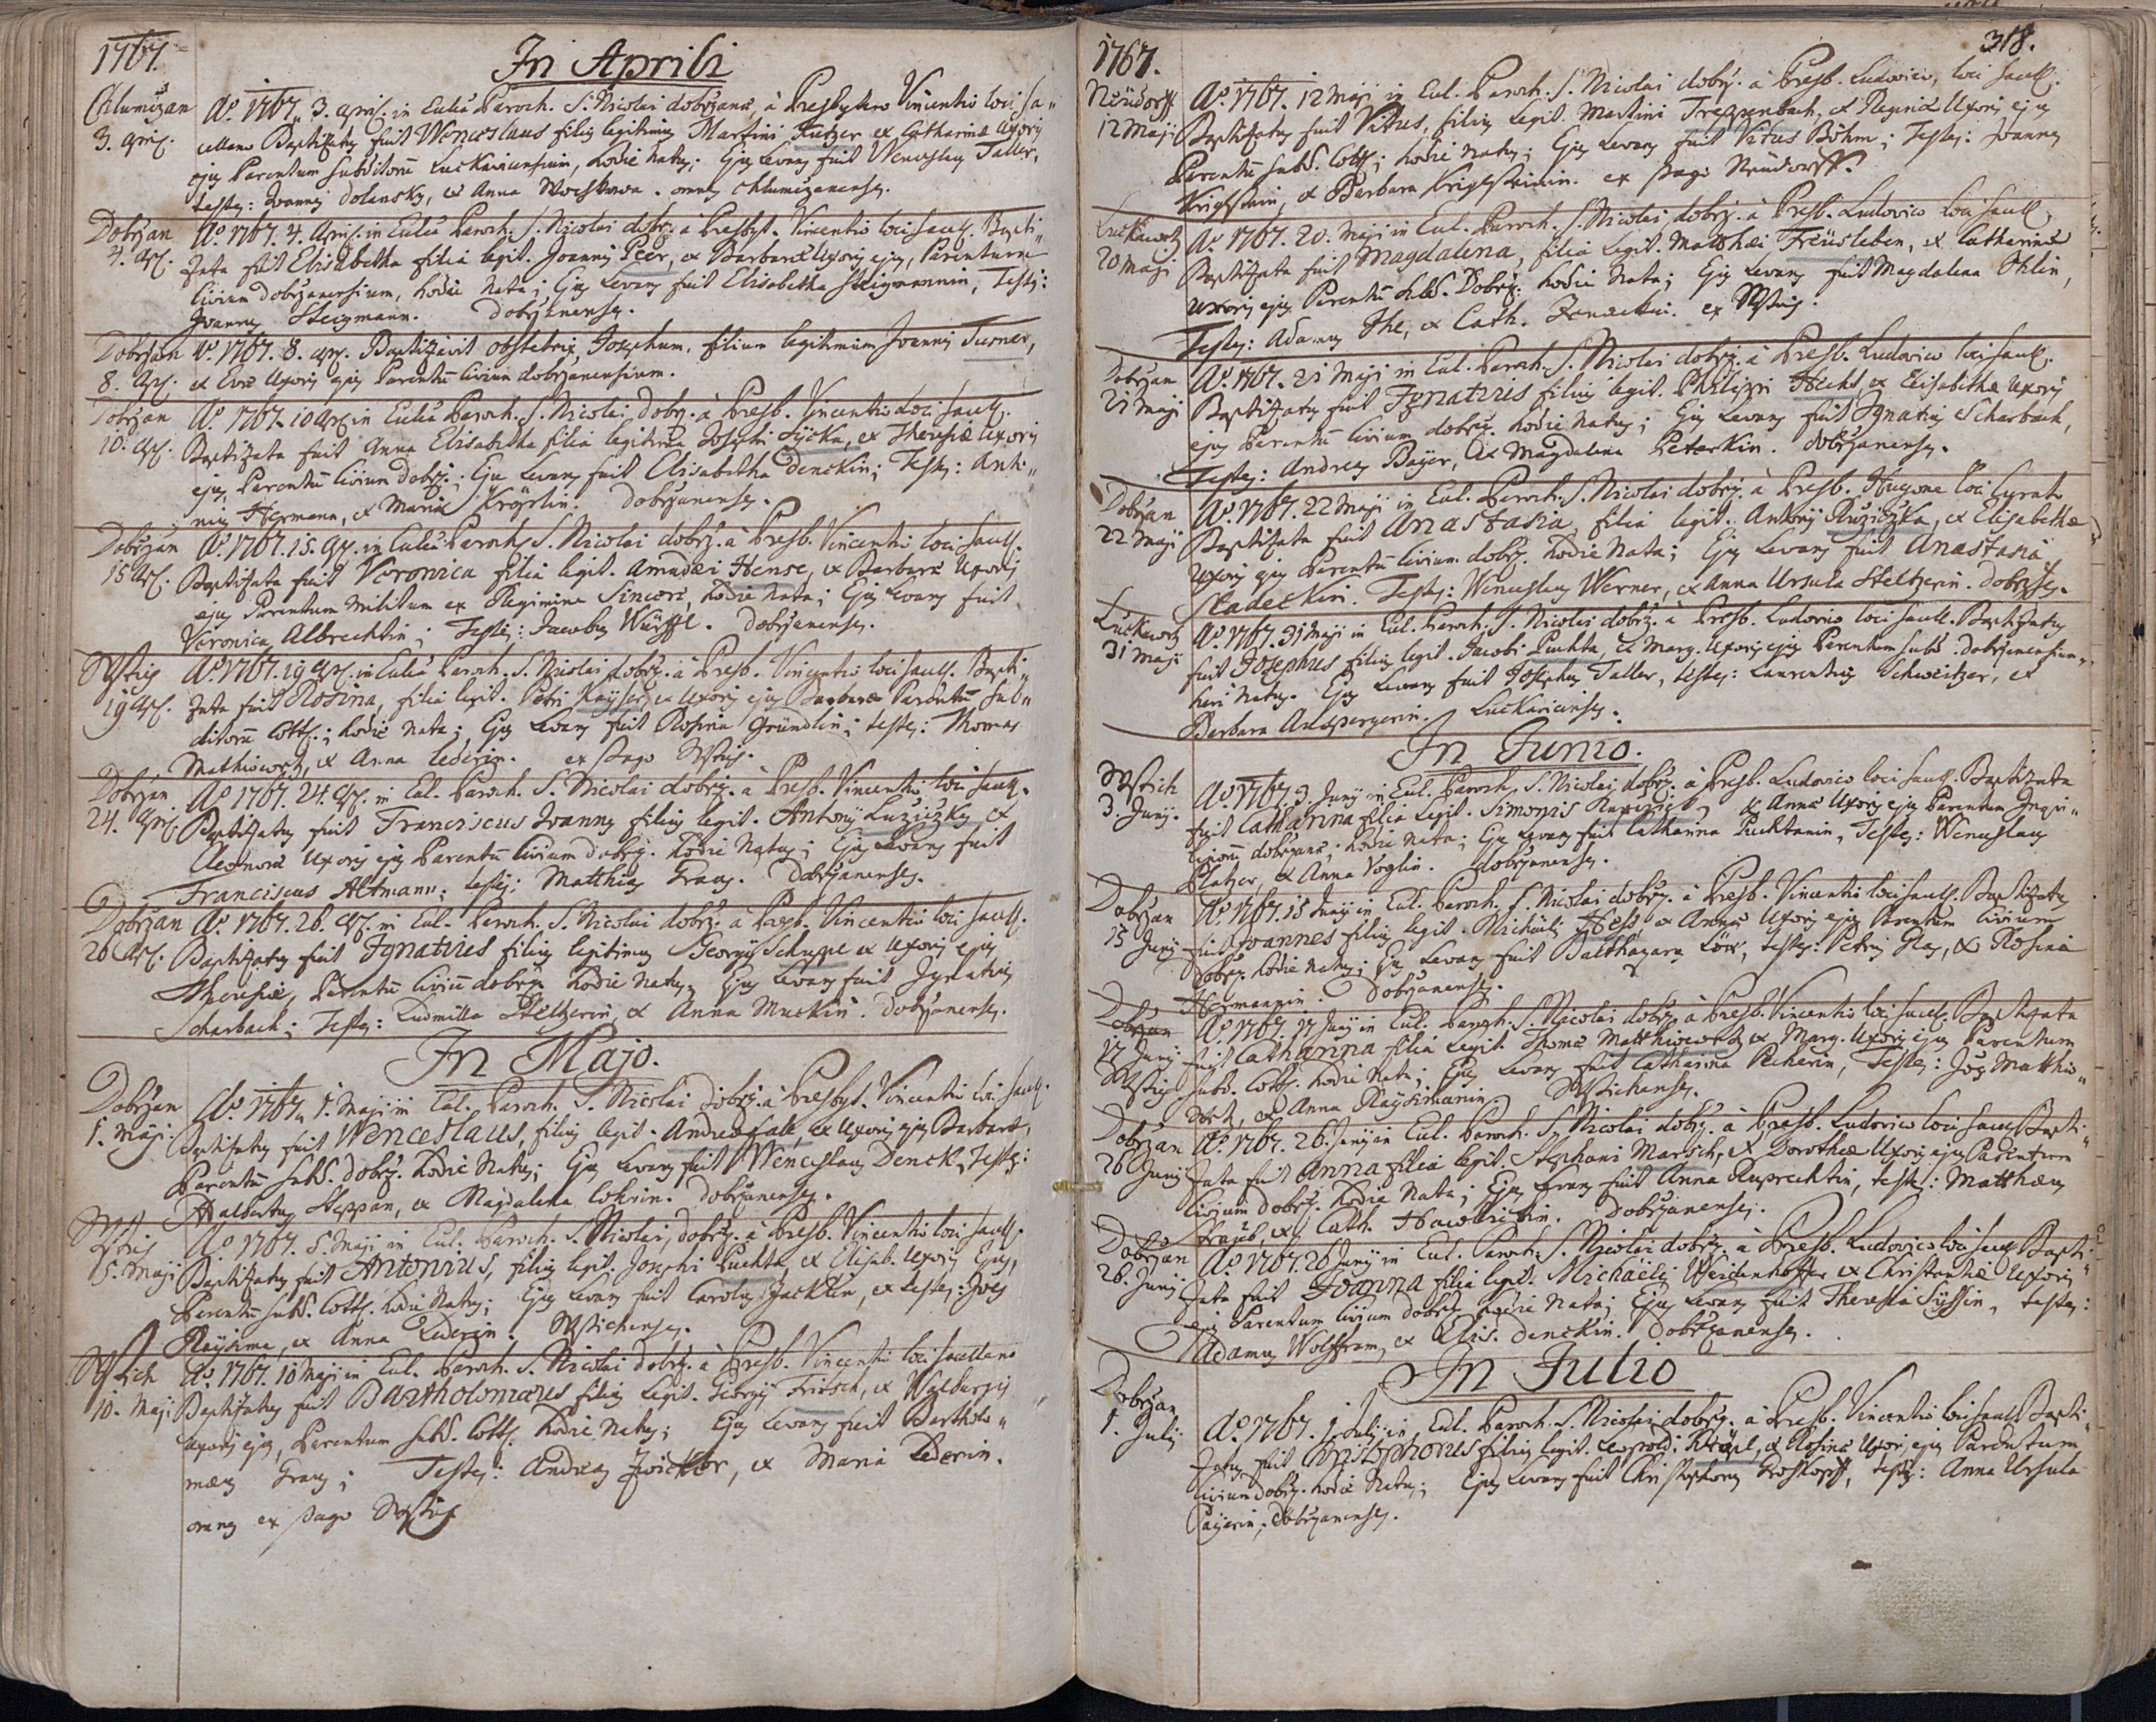 1767.
In Aprili
Chlumčzan
3. April.
Aō 1767. 3. April. in Eccłiâ Paroch. S. Nicolai dobržanæ, à Presbytero Vincentio loci sa"
cellano Baptizatus fuit Wenceslaus filius legitimus Martini Kutzer ex Catharinæ Uxoris
ejus Parentum subditorū Luckavicensium, hodie natus; Ejus Levans fuit Wenceslaus Taller,
testes: Joannes Dolansky, et Anna omnes Chlumčzanenses.
Dobržan
4. Apl.
Aō 1767. 4. April. in Eccłiâ Paroch. S. Nicolai dobrž. à Presbyt. Vincentio loci sacell. Bapti"
zata fuit Elisabetha filia legit. Joannis Peer, et Barbaræ Uxoris ejus, Parentum
Civium dobržanensium, hodie nata; Ejus Levans fuit Elisabetha Steigmannin, Testes:
Joannes Steigmann. Dobržanenses.
Dobržan
8. Apl.
Aō 1767. 8. Apl. Baptizavit obstetrix Josephum, filium legitimum Joannis Turner,
et Evæ Uxoris ejus Parentū Civium dobržanensium.
Dobržan
10. Apl.
Aō 1767. 10 Apl in Eccłiâ Paroch. S. Nicolai Dobrž. à Presb. Vincentio loci sacell.
Baptizata fuit Anna Elisabetha filia legitima Josephi Sÿcka, et Theresiæ Uxoris
ejus, Parentū Civium Dobrž.; Ejus Levans fuit Elisabetha Denckin; Testes: Anto"
nius Hermann, et Maria Krößlin. Dobržanenses.
Dobržan
15 Apl.
Aō 1767. 15. Apl. in Eccłiâ Paroch. S. Nicolai dobrž. à Presb. Vincentio loci sacell.
Baptizata fuit Veronica filia legit. Amadæi Hense, et Barbaræ Uxoris
ejus Parentum Militum ex Regimine Sincere, hodie nata; Ejus Levans fuit
Veronica Albrechtin; Testes: Jacobus Würffl. Dobržanenses.
19 Apl.
Aō 1767. 19 Apl. in Eccłiâ Paroch. S. Nicolai dobrž. à Presb. Vincentio loci sacell. Bapti"
zata fuit Rosina, filia legit. Petri Kayser, et Uxoris ejus Barbaræ Parentū sub"
ditorū Cott.; hodie nata; Ejus Levans fuit Rosina Gründlin; testes: Thomas
Mathiowetz, et Anna Lederin. ex pago
Dobržan
24. Apl.
Aō 1767. 24. Apl. in Ecl. Paroch. S. Nicolai dobrž. à Presb. Vincentio loci sacell.
Baptizatus fuit Franciscus Joannes filius legit. Antonij Luziczky et
Eleonoræ Uxoris ejus Parentū Civium dobrž. hodie natus; Ejus Levans fuit
Franciscus Altmann; testes: Matthias Graus. Dobržanenses.
Dobržan
26 Apl.
Aō 1767. 26. Apl. in Ecl. Paroch. S. Nicolai dobrž. à Presb. Vincentio loci sacell.
Baptizatus fuit Ignatius filius legitimus Georgij Schuppe et Uxoris ejus
Theresiæ, Parentū Civiū dobrž. hodie natus, Ejus Levans fuit Ignatius
Scharbach; Testes: Ludmilla Steltzerin, et Anna Muckin. Dobržanenses.
In Majo.
Dobržan
1. Maji.
Aō 1767. 1. Maji in Ecl. Paroch. S. Nicolai Dobrž. à Presbyt. Vincentio loci sacell.
Baptizatus fuit Wenceslaus, filius legit. Andreæ et Uxoris ejus Barbaræ,
Parentū subd. dobrž. hodie natus; Ejus Levans fuit Wenceslaus Denck, Testes:
Adalbertus Steppan, et Magdalena Dobržanenses.
5. Maji
Aō 1767. 5. Maji in Ecl. Paroch. S. Nicolai, dobrž. à Presb. Vincentio loci sacell.
Baptizatus fuit Antonius, filius legit. Josephi Puchta, et Elisab. Uxoris Ejus,
Parentū subd. Cott. hodie natus; Ejus Levans fuit Carolus Jäckkin, et testes: Joes
et Anna Lederin.
10. Maji
Aō 1767. 10 Maji in Ecl. Paroch. S. Nicolai dobrž. à Presb. Vincentio loci sacellano
Baptizatus fuit Bartholomæus filius legit. Georgij Fritsch, et Walburgis
Uxoris ejus, Parentum subd. Cott. hodie natus; Ejus Levans fuit Bartholo"
mæus Graus; Testes: Andreas Zwicker, et Maria Lederin.
omnes ex pago
1767.
318.
Neüdorff
12 Maji
Aō. 1767. 12 Maji in Ecl. Paroch. S. Nicolai dobrž. à Presb. Ludovico, loci sacell.
Baptizatus fuit Vitus, filius legit. Martini Treppenbach, et Reginæ Uxoris ejus
Parentū subd. Cott.; hodie natus; Ejus Levans fuit Vitus Böhm; Testes: Joannes
Kriglstein, et Barbara Kriglsteinin. ex pago Neüdorff.
Luckawetz
20 Maji
Aō 1767. 20. Maji in Ecl. Paroch. S. Nicolai dobrž. à Presb. Ludovico loci sacell.
Baptizata fuit Magdalena, filia legit. Matthæi Freüsleben, et Catharinæ
Uxoris ejus Parentū subd. Dobrž. hodie nata; Ejus Levans fuit Magdalena
Testes: Adamus et Cath.
Dobržan
21 Maji
Aō. 1767. 21 Maji in Ecl. Paroch. S. Nicolai dobrž. à Presb. Ludovico loci sacell.
Baptizatus fuit Ignatius filius legit. Philippi Hecht, et Elisabethæ Uxoris
ejus Parentū Civium dobrž. hodie natus; Ejus Levans fuit Ignatius Scharbach,
Testes: Andreas Baÿer, et Magdalena Peterkin. Dobržanenses.
Dobržan
22 Maji
Aō. 1767. 22 Maji in Ecl. Paroch. S. Nicolai dobrž. à Presb. Hugone loci Curato
Baptizata fuit Anastasia, filia legit. Antonij Ruziczka, et Elisabethæ
Uxoris ejus Parentū Civium dobrž. hodie nata; Ejus Levans fuit Anastasia
Sladeckin. Testes: Wenceslaus Werner, et Anna Ursula Steltzerin. Dobržses.
Luckawetz
31 Maji
Aō 1767. 31 Maji in Ecl. Paroch. S. Nicolai dobrž. à Presb. Ludovico loci sacell. Baptizatus
fuit Josephus filius legit. Jacobi Puchta, et Marg. Uxoris ejus Parentum subd. dobržanensium,
heri natus. Ejus Levans fuit Josephus Taller, testes: Laurentius Schweitzer, et
Barbara Luckavicenses.
In Junio.
3. Junij.
Aō 1767. 3. Junij in Ecl. Paroch. S. Nicolai dobrž. à Presb. Ludovico loci sacell. Baptizata
fuit Catharina filia legit. Simonis et Annæ Uxoris ejus Parentum
dobržanæ; hodie nata; Ejus Levans fuit Catharina Puchtanin, Testes: Wenceslaus
Platzer, et Anna Voglin. dobržanenses.
Dobržan
15 Junij
Aō. 1767. 15 Junij in Ecl. Paroch. S. Nicolai dobrž. à Presb. Vincentio loci sacell. Baptizatus
fuit Joannes filius legit. Michaëlis Hess, et Annæ Uxoris ejus Parentum Civium
dobrž. hodie natus; Ejus Levans fuit Balthazarus Lörr, testes: Petrus Glas, et Rosina
Hermannin. Dobržanenses.
Dobržan
17 Junij
Aō. 1767. 17 Junij in Ecl. Paroch. S. Nicolai dobrž. à Presb. Vincentio loci sacell. Baptizata
fuit Catharina filia legit. Thomæ Matthiowetz et Marg. Uxoris ejus Parentum
subd. Cott. hodie nata; Ejus Levans fuit Catharina Pecherin, Testes: Jos Matthio"
wetz, et Anna
Dobržan
26 Junij
Aō. 1767. 26. Junij in Ecl. Paroch. S. Nicolai dobrž. à Presb. Ludovico loci sacell. Bapti"
zata fuit Anna filia legit. Stephani Marsch, et Dorotheæ Uxoris ejus Parentum
Civium dobrž. hodie nata; Ejus Levans fuit Anna Ruprechtin, testes: Matthæus
Straub, et Cath. Dobržanenses.
Dobržan
26. Junij
Aō. 1767. 26 Junij in Ecl. Paroch. S. Nicolai dobrž. à Presb. Ludovico loci sacell. Bapti"
zata fuit Joanna filia legit. Michaëlis Weidenhoffer et Christinæ Uxoris
ejus Parentum Civium dobrž. hodie nata; Ejus Levans fuit Theresia Süssin, testes:
Adamus Wolffram, et Elis. Denckin. Dobržanenses.
In Julio
Dobržan
1. Julij
Aō. 1767. 1. Julij in Ecl. Paroch. S. Nicolai dobrž. à Presb. Vincentio loci sacell. Bapti"
zatus fuit Christophorus filius legit. Leopoldi Kröpl, et Rosinæ Uxoris ejus Parentum
Civium dobrž. hodie natus; Ejus Levans fuit Christophorus Groskopff, testes: Anna Ursula
Paÿerin, dobržanenses.